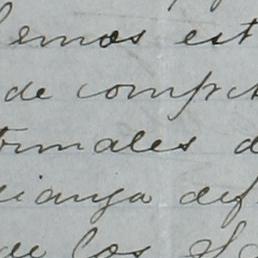 emos est
de comp
rmales d
ianza def
de los